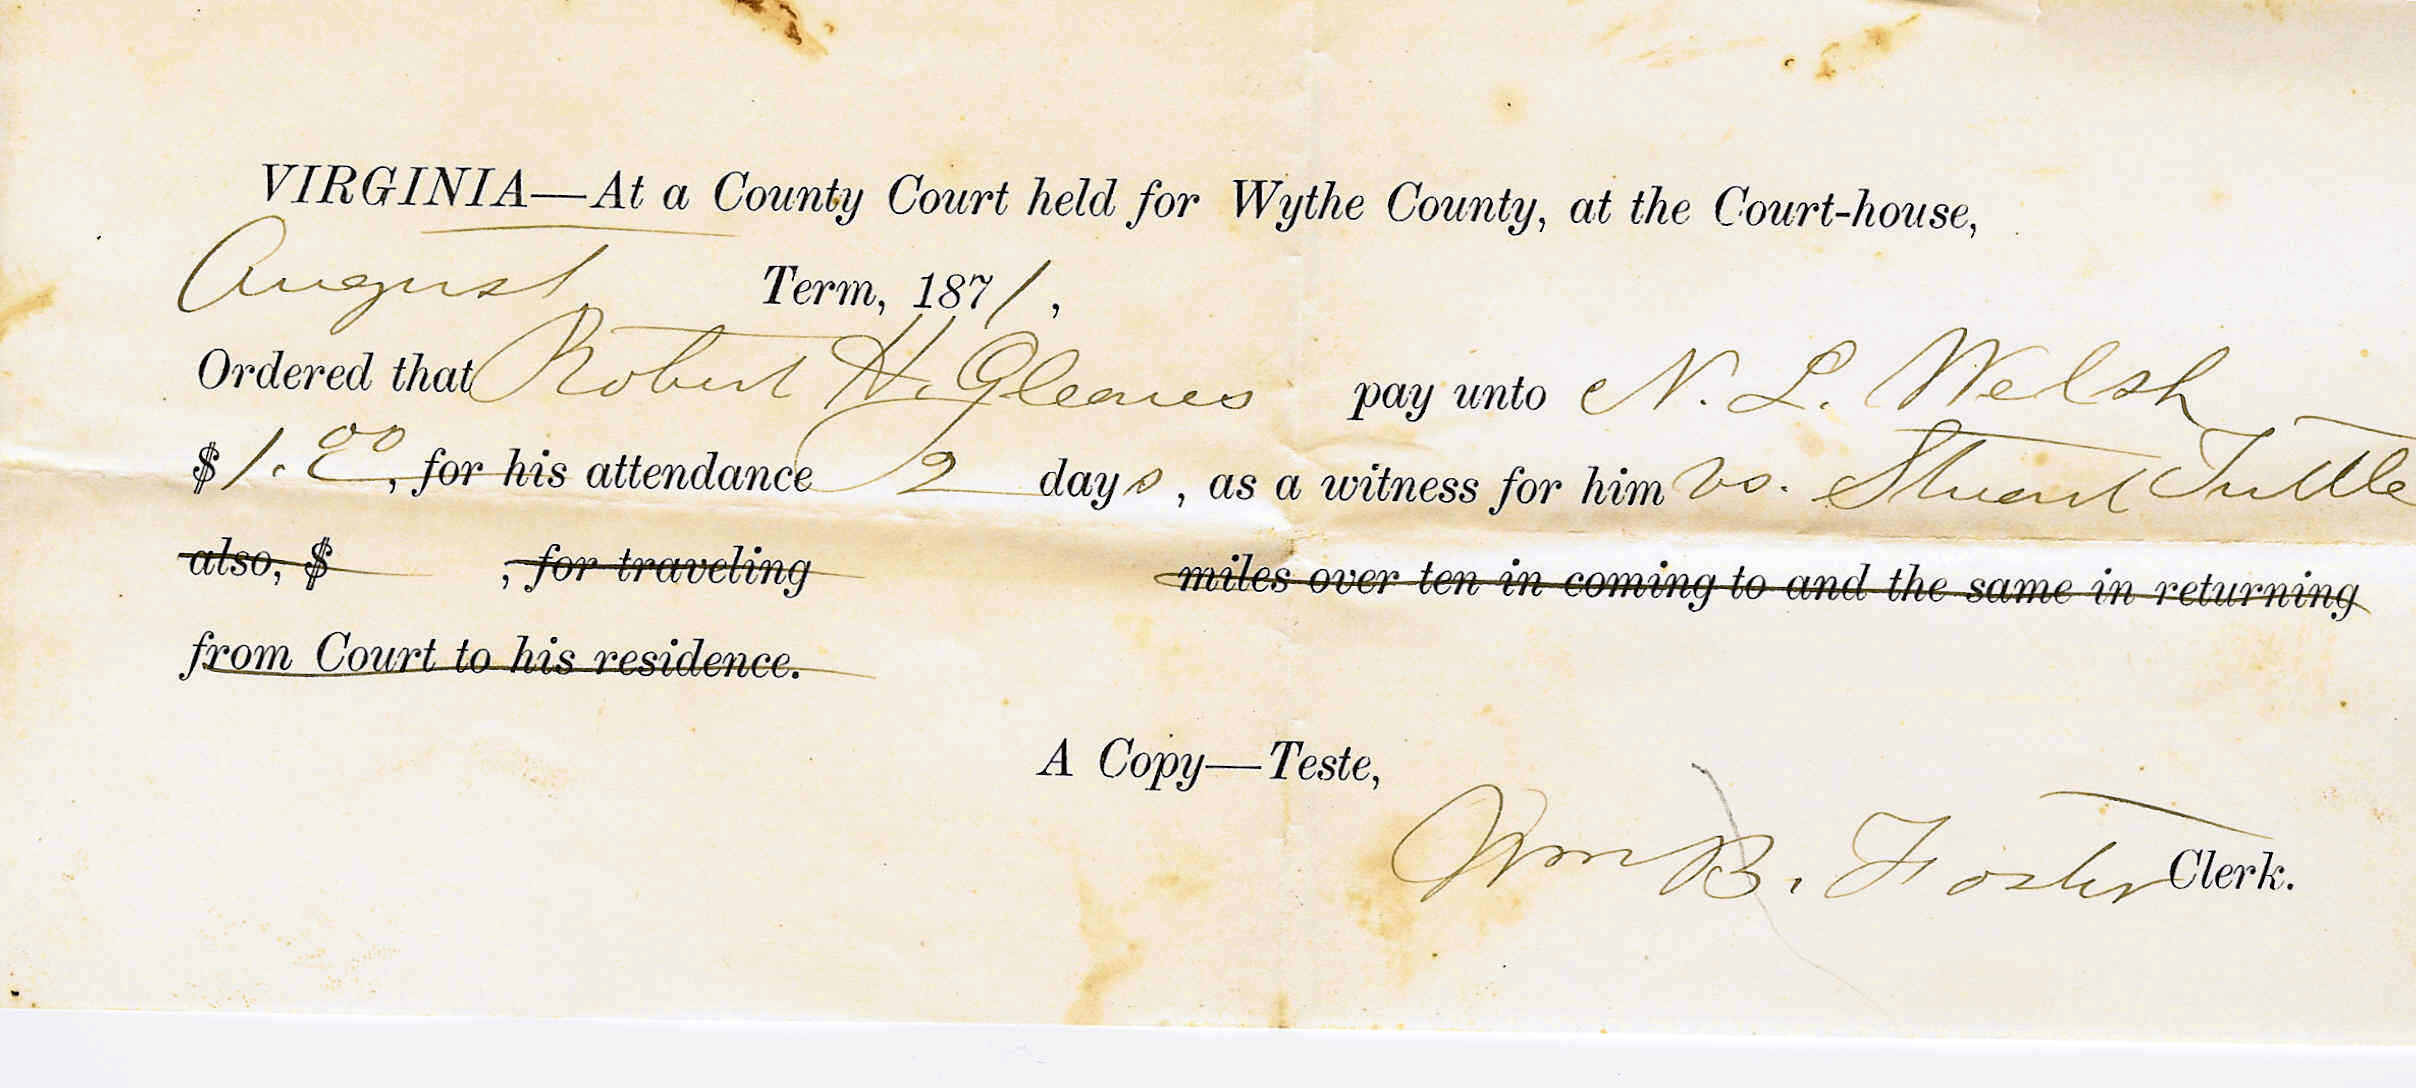 VIRGINIA—At a County Court held for Wythe County, at the Court-house,
August Term, 1871,
Ordered that Robert H. Gleaves pay unto N. L. Welsh
$1.00, for his attendance 2 days, as a witness for him vs. Stuart Tuttle
also, $ , for traveling miles over ten in coming to and the same in returning
from Court to his residence.
A Copy—Teste,
Wm B. Foster Clerk.